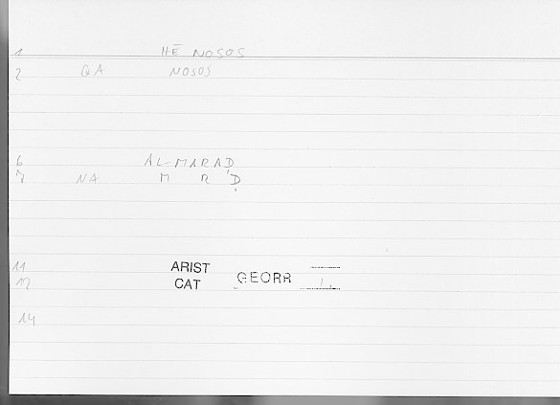 1 HĒ NOSOS
2 QA NOSOS
6 AL-MARAḌ
7 NA M R Ḍ
11 ARIST
12 CAT GEORR
14